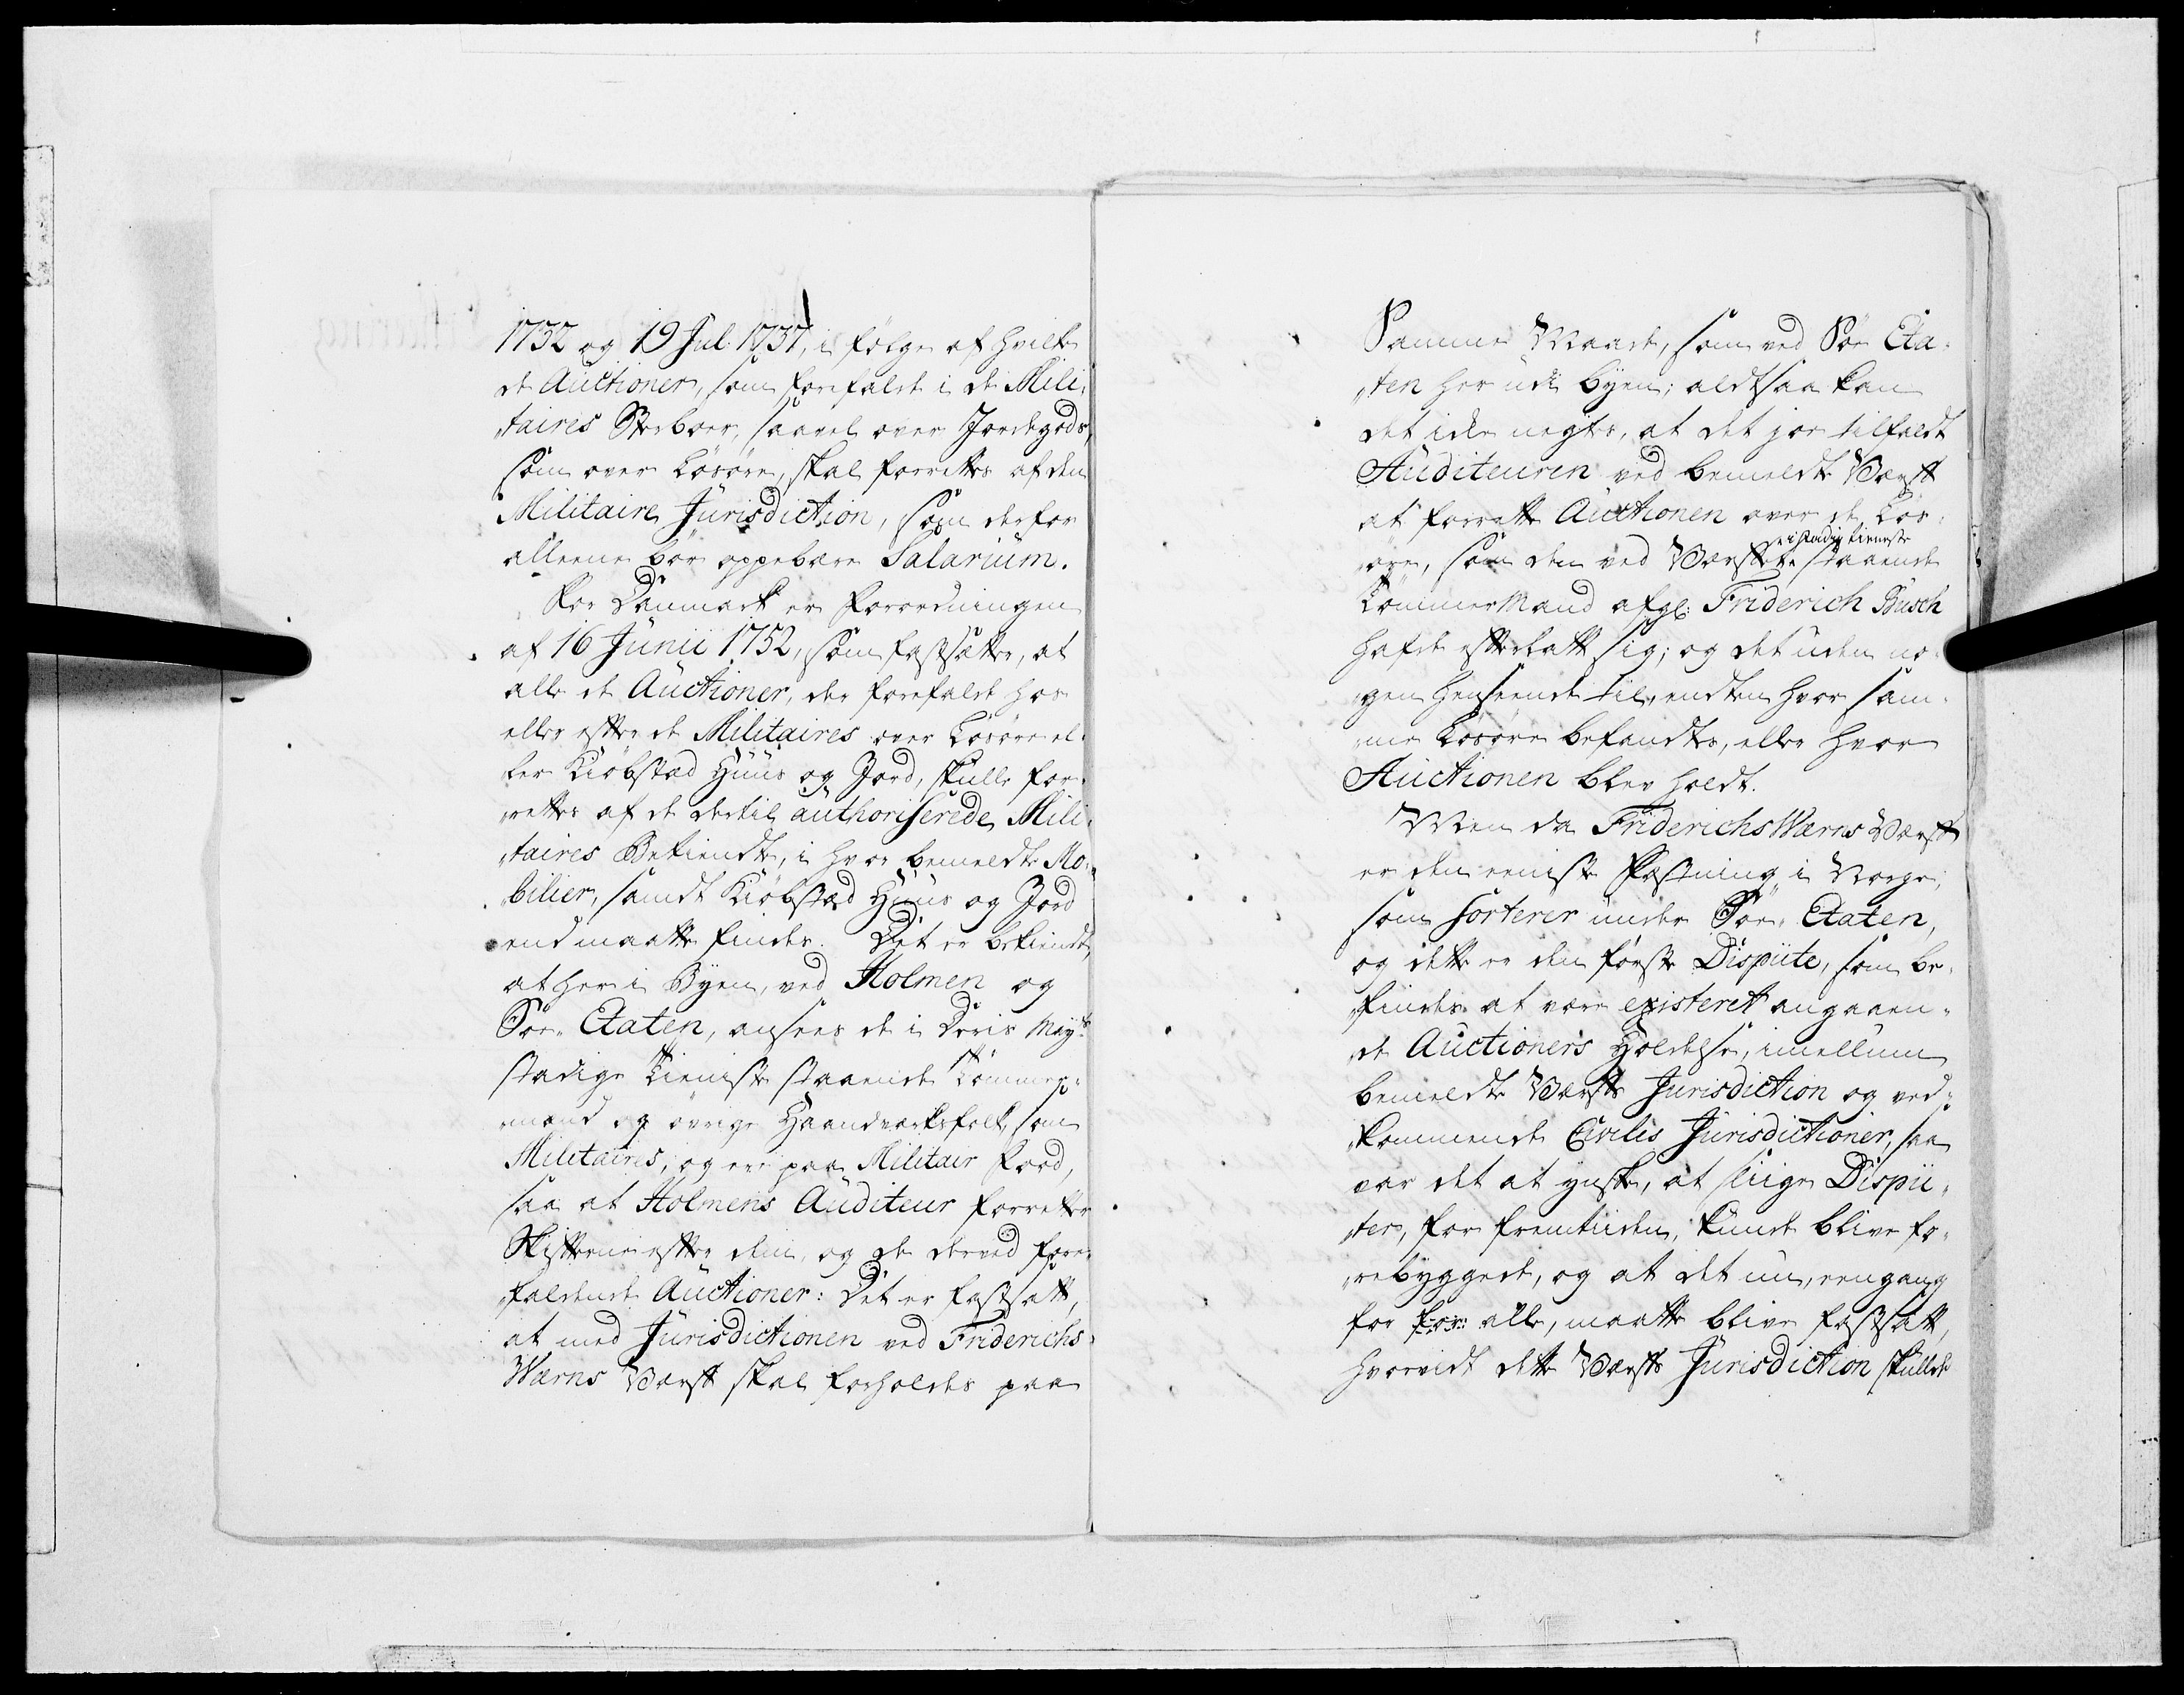 1732 og 19 Jul: 1737, i følge af hvilke
de Auctioner, som forefalde i de Mili-
taires Sterboer, saavel over Jordegods,
som over Løsøre, skal forrettes af den
Militaire Jurisdiction, som derfor
alleene bør oppebære Salarium.
For Danmark er Forordningen
af 16 Junii 1752, som fastsætter, at
alle de Auctioner, der forefalde hos
eller efter de Militaires over Løsøre el-
ler Kiøbstad Huus og Jord, skulle for-
rettes af de dertil authoriserede Mili-
taires Betiendte, i hvor bemeldte Mo-
bilier, samdt Kiøbstæd Huus og Jord
end maatte findes. Det er bekiendt,
at her i Byen, ved Holmen og
Søe-Etaten, ansees de i Deris Mayts
stadige Tieniste staaende Tømmer-
mænd og øvrige Haandværksfolk, som
Militaires, og ere paa Militair Food,
saa at Holmens Auditeur forretter
Skifterne efter dem, og de derved fore-
faldende Auctioner: Det er fastsatt,
at med Jurisdictionen ved Friderichs-
Wærns Værft skal forholdes paa
Samme Maade, som ved Søe Eta-
ten her udi Byen; altsaa kan
det ikke negtes, at det jo er tilfaldt
Auditeuren ved bemeldte Værft
at forrette Auctionen over de Løs-
øre, som den ved Værftet i stadig tieneste staaende
Tømmermand afgl: Friderich Busch
hafde efterladt sig; og det uden no-
gen henseende til, endten hvor sam-
me Løsøre befandtes, eller hvor
Auctionen blev holdt.
Men da FriderichsWærns Værft
er den eeniste Fæstning i Norge,
som sorterer under Søe-Etaten,
og dette er den første Dispute, som be-
findes at være existeret angaaen-
de Auctioners Holdelse, imellum
bemeldte Værfts Jurisdiction og ved-
kommende Civiles Jurisdictioner, saa
var det at ynske, at sliige Dispu-
ter, for fremtiiden, kunde blive fo-
rebyggede, og at det nu, eengang
for for: alle, maatte blive fastsatt,
hvorvidt dette Værfts Jurisdiction skulde